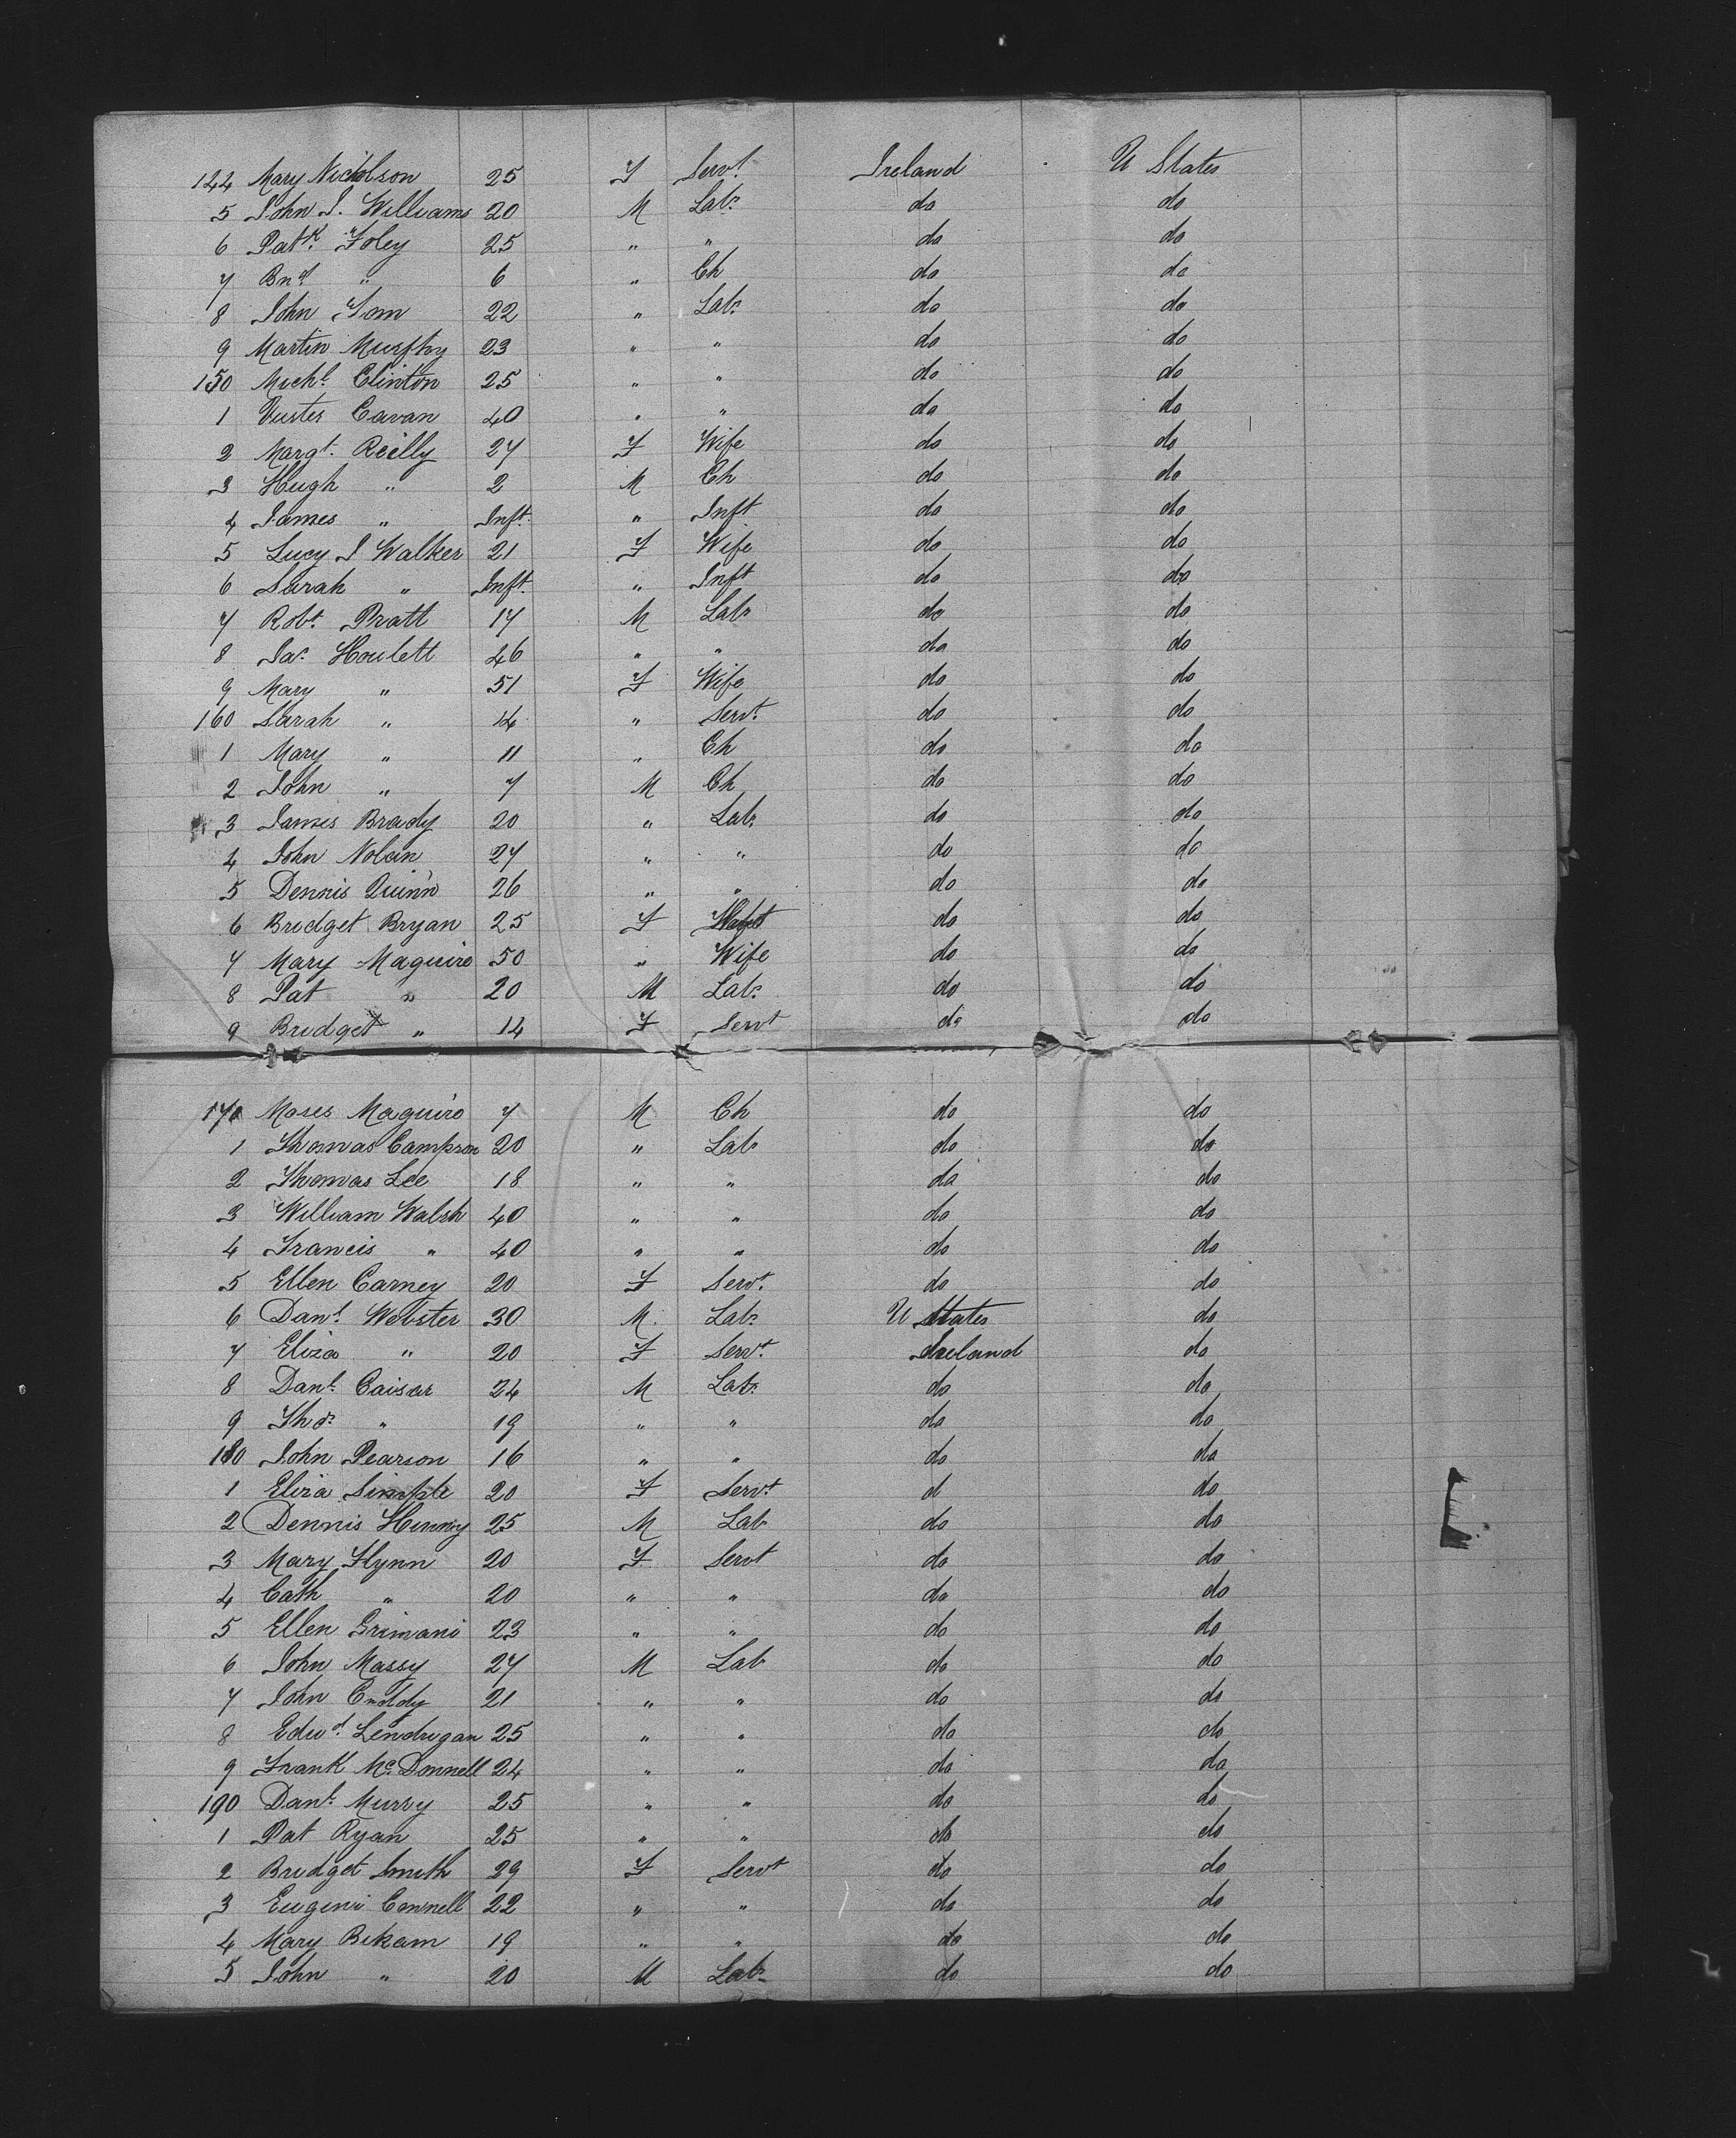 144 Mary Nicholson 25 F Servt. Ireland U States
5 John J. Williams 20 M Labr. do do
6 Patk. Foley 25 " " do do
7 Bnd. " 6 " Ch do do
8 John Tom 22 " Labr. do do
9 Martin Murphy 23 " " do do
150 Michl. Clinton 25 " " do do
1 Cavan 40 " " do do
2 Margt. Reilly 27 F Wife do do
3 Hugh " 2 M Ch do do
4 James " Inft. " Inft do do
5 Lucy J Walker 21 F Wife do do
6 Sarah " Inft. " Inft do do
7 Robt. Pratt 17 M Labr do do
8 Jas. Houlett 46 " " do do
9 Mary " 51 F Wife do do
160 Sarah " 14 " Servt. do do
1 Mary " 11 " Ch do do
2 John " 7 M Ch do do
3 James Brady 20 " Labr. do do
4 John Nolan 27 " " do do
5 Dennis Quinn 26 " " do do
6 Bridget Bryan 25 F do do
7 Mary Maguire 50 " Wife do do
8 Pat " 20 M Labr. do do
9 Bridget " 14 F Servt do do
170 Moses Maguire 7 M Ch do do
1 Thomas Campson 20 " Labr do do
2 Thomas Lee 18 " " do do
3 William Walsh 40 " " do do
4 Francis " 40 " " do do
5 Ellen Carney 20 F Servt. do do
6 Danl. Webster 30 M. Labr. U States do
7 Eliza " 20 F Servt. Ireland do
8 Danl. Caisar 24 M Labr. do do
9 Thos. " 19 " " do do
180 John Pearson 16 " " do do
1 Eliza Simple 20 F Servt d do
2 Dennis 25 M Lab do do
3 Mary Flynn 20 F Servt do do
4 Cath " 20 " " do do
5 Ellen Grimani 23 " " do do
6 John Massy 27 M Lab do do
7 John Cuddy 21 " " do do
8 Edwd. Lendrigan 25 " " do do
9 Frank McDonnell 24 " " do do
190 Danl. Murry 25 " " do do
1 Pat Ryan 25 " " do do
2 Bridget Smith 29 F Servt do do
3 Eugeni Connell 22 " " do do
4 Mary Bekam 19 " " do do
5 John " 20 M Labr. do do